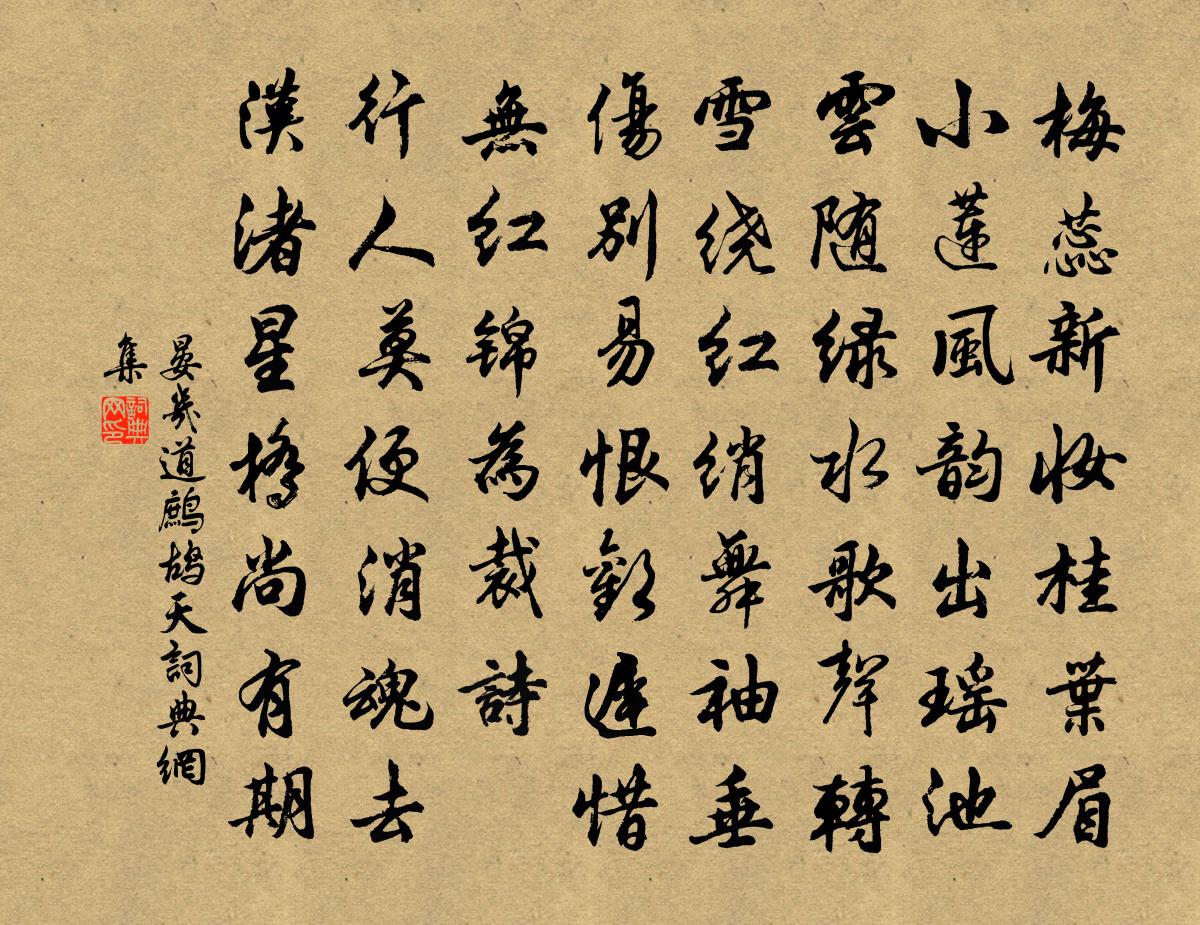 梅蕊新妝桂葉眉
小蓮風韵出瑶池
雲随緑水歌聲轉
雪绕红绡舞袖垂
傷别易恨歡遲惜
無红锦為裁詩
行人莫便消魂去
漢渚星橋尚有期
晏幾道鷓鴣天詞典網
集
詞典
网印